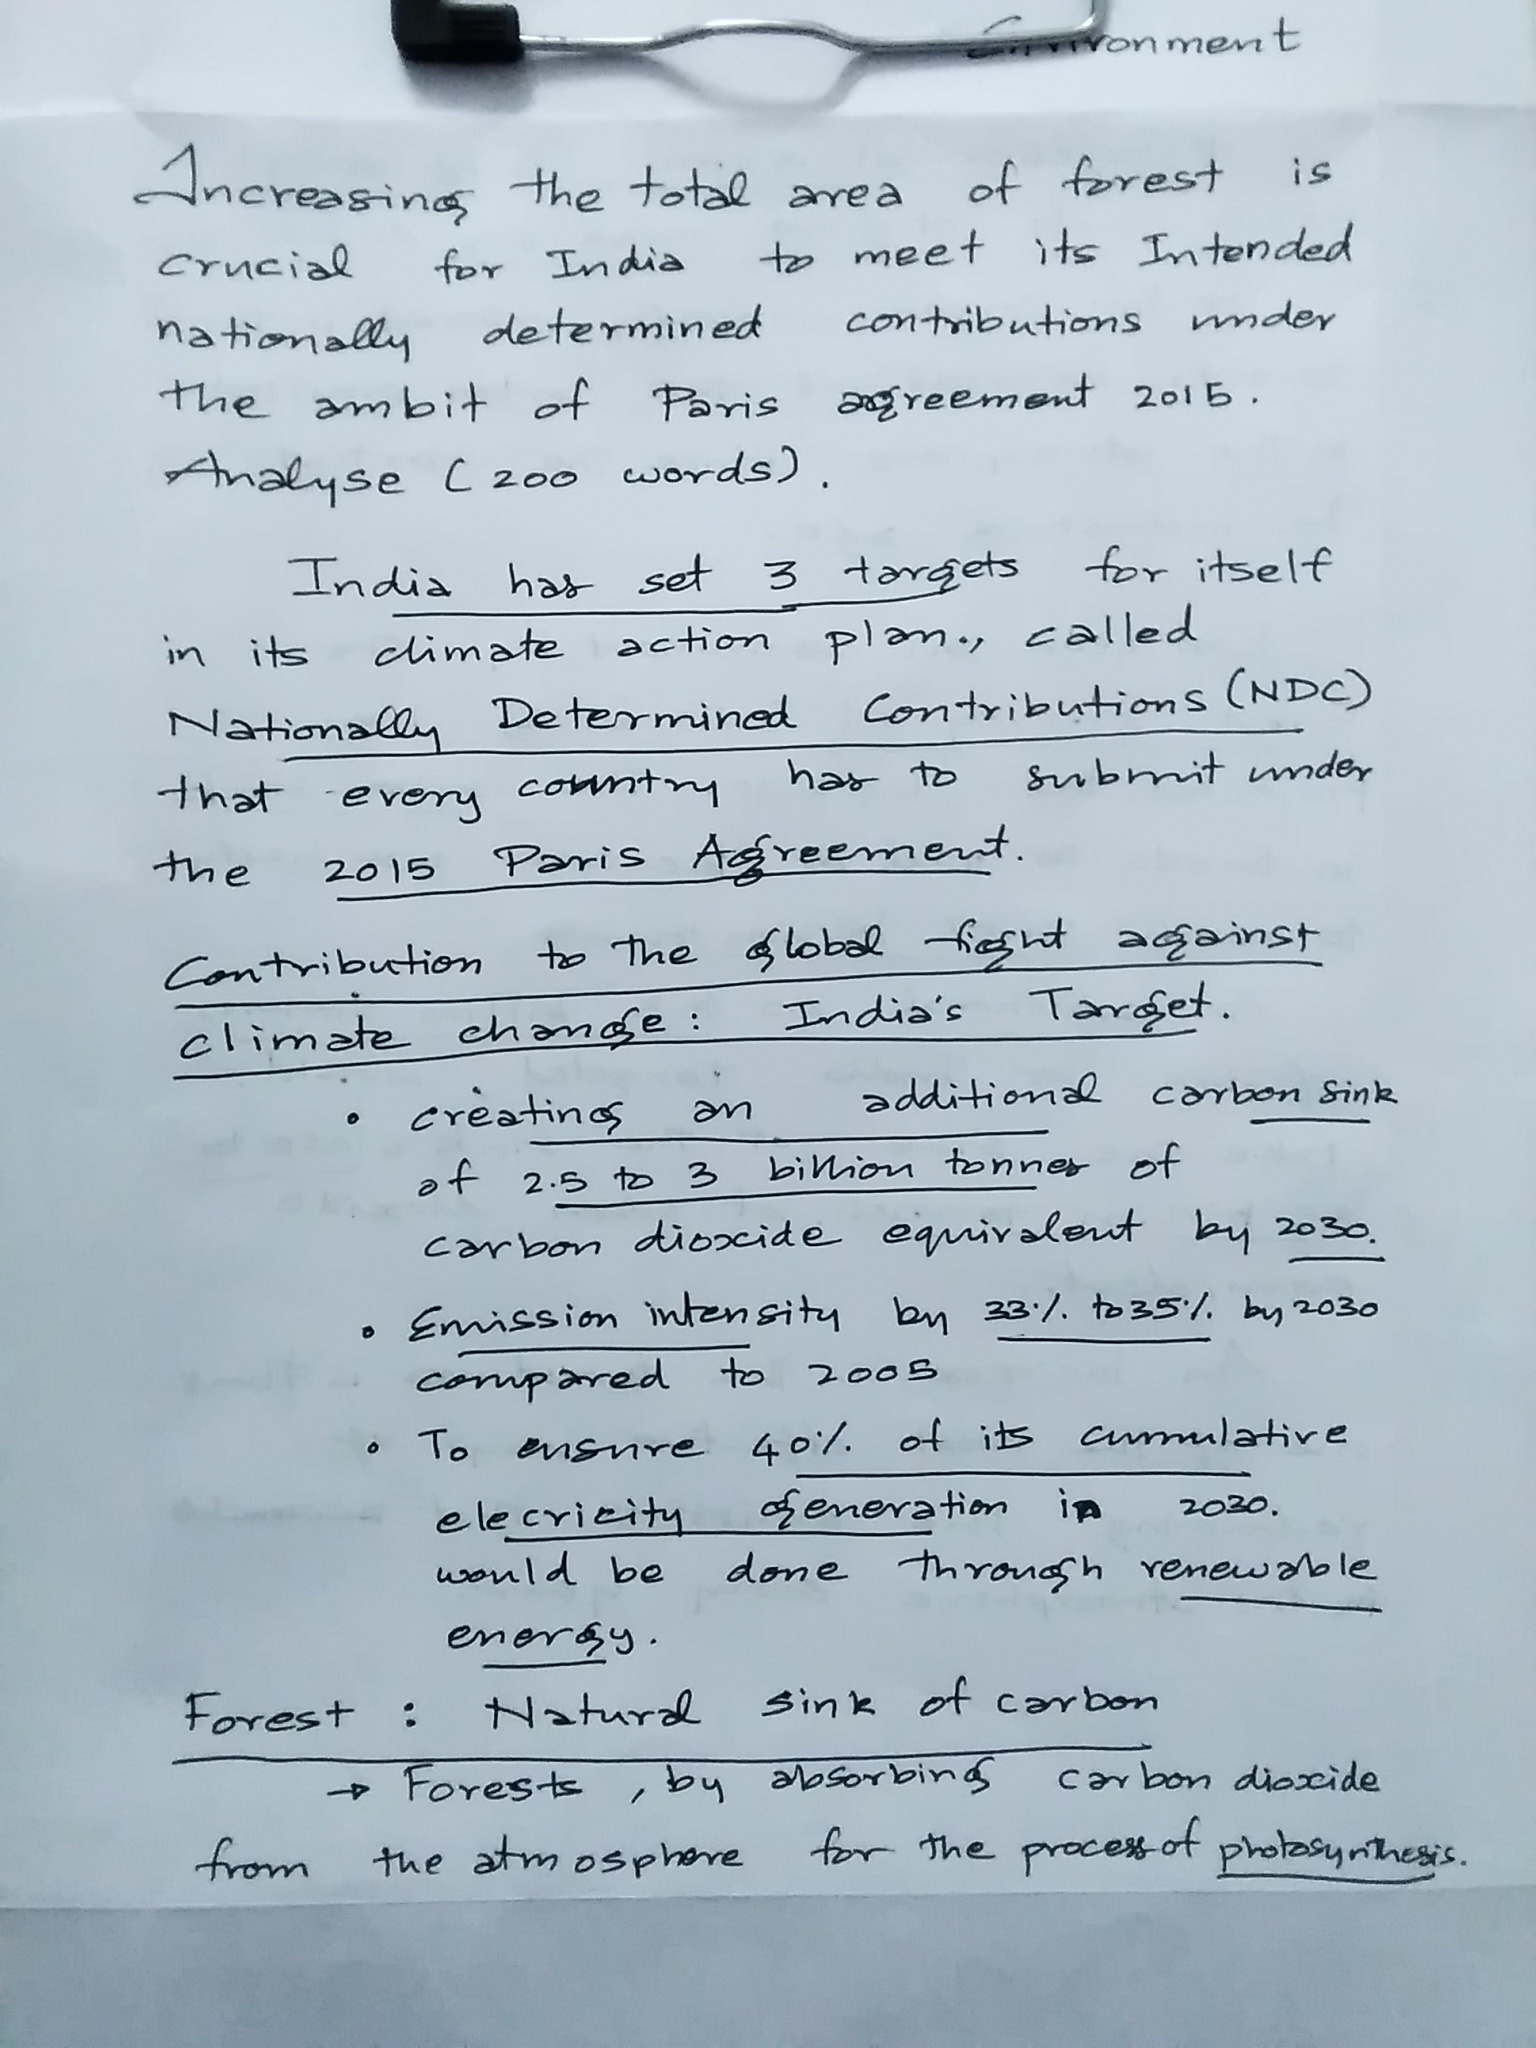 Environment
Increasing the total area of forest is
crucial for India to meet its Intended
nationally determined contributions under
the ambit of Paris agreement 2015.
Analyse (200 words).
India has set 3 targets for itself
in its climate action plan., called
Nationally Determined Contributions (NDC)
that every country has to submit under
the 2015 Paris Agreement.
Contribution to the global fight against
climate change: India's Target.
• creating an additional carbon sink
of 2.5 to 3 billion tonnes of
carbon dioxide equivalent by 2030.
• Emission intensity by 33% to 35% by 2030
compared to 2005
• To ensure 40% of its cumulative
elecricity generation in 2030.
would be done through renewable
energy.
Forest : Natural sink of carbon
→ Forests, by absorbing carbon dioxide
from the atmosphere for the process of photosynthesis.